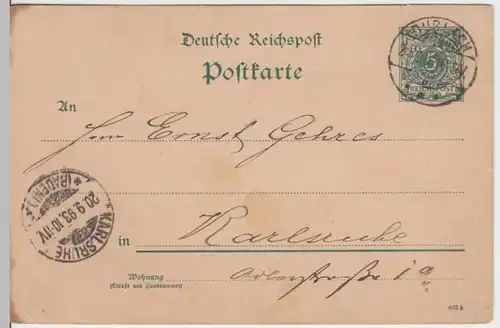 Deutsche Reichspost
Postkarte
DURLACH
5
REICHSPOST
An
Herrn Ernst Gehres
KARLSRUHE
20.9.93.10-11V
(BADEN) 1.
in Karlsruhe
Wohnung
(Straße und Hausnummer)
Adlerstraße 1a